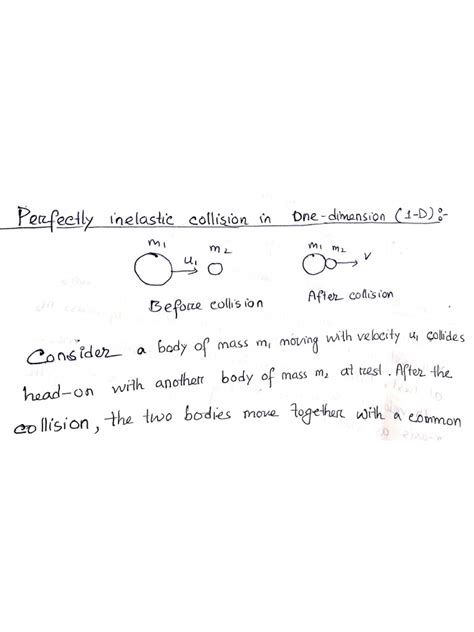 Perfectly inelastic collision in One-dimension (1-D):-
m1 m2 m1 m2
u1 v
Before collision After collision
Consider a body of mass m1 moving with velocity u1 collides
head-on with another body of mass m2 at rest. After the
collision, the two bodies move together with a common